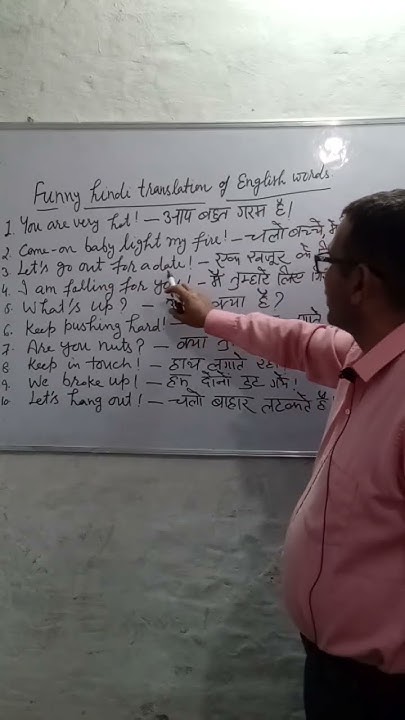 Funny hindi translation of English words.
1. You are very hot! – आप बहुत गरम है।
2. Come-on baby light my fire! – चलो बच्चे, मे
3. Let's go out for a date! – एक खजूर के लि
4. I am falling for you! – मैं तुम्हारे लिए गि
5. What's up? – क्या है?
6. Keep pushing hard! –
7. Are you nuts? – क्या तु
8. Keep in touch! – हाथ लगाते रहो!
9. We broke up! – हम दोनों टुट गये!
10. Let's hang out! – चलो बाहर लटकते हैं